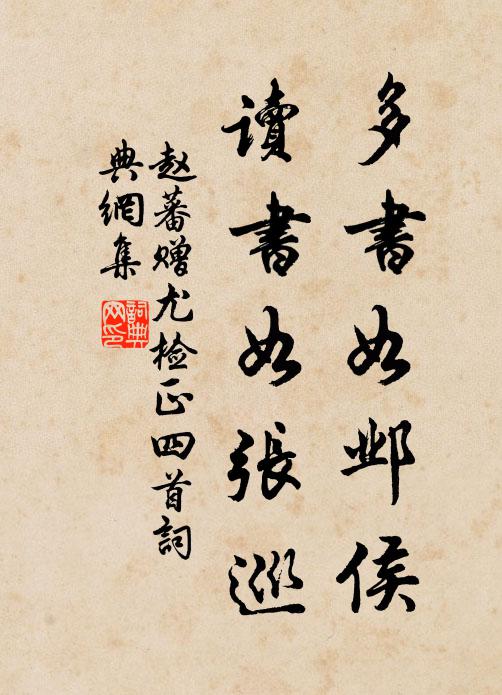 多書如邺侯
讀書如張巡
赵蕃赠尤检正四首詞
典網集
詞典
网印